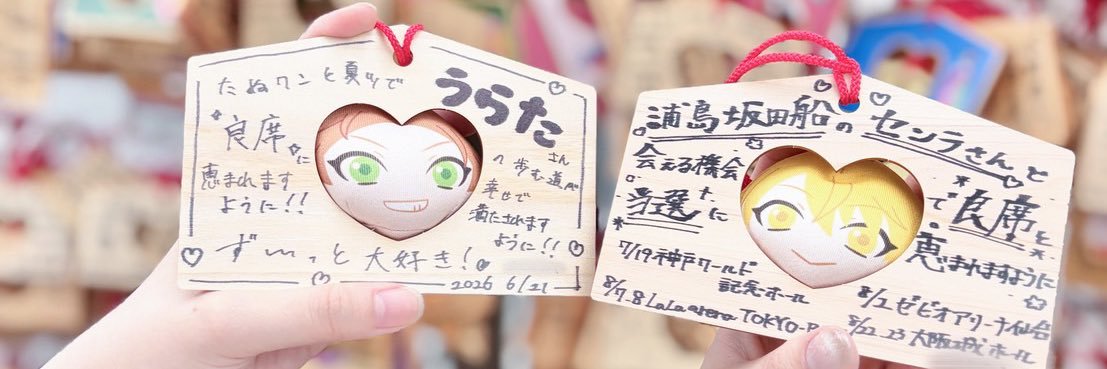 たぬワンと夏ツで
良席に
恵まれます
ように!!
うらた
さん
の歩む道が
幸せで
満たされます
ように!!
ずーっと大好き!
2026 6/21
浦島坂田船のセンラさんと
会える機会
当選に
で良席と
恵まれますように
7/19神戸ワールド
記念ホール
8/7.8 LaLa arena TOKYO-B
8/2ゼビオアリーナ仙台
8/22_23大阪城ホール